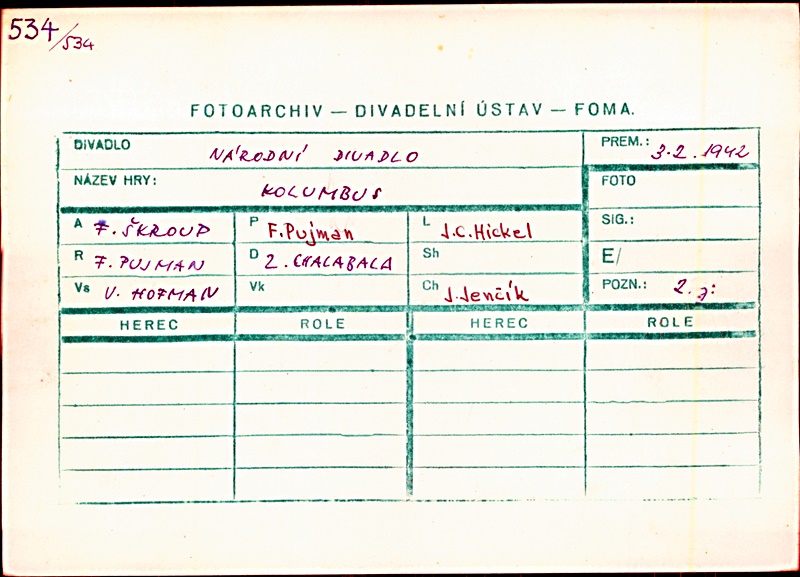 534/534
FOTOARCHIV — DIVADELNÍ ÚSTAV — FOMA.
DIVADLO NÁRODNÍ DIVADLO PREM.: 3.2.1942
NÁZEV HRY: KOLUMBUS FOTO
A F. ŠKROUP P F. Pujman L J.C. Hickel SIG.:
R F. PUJMAN D Z. CHALABALA Sh E/
Vs V. HOFMAN Vk Ch J. Jenčík POZN.: 2. j:
HEREC ROLE HEREC ROLE